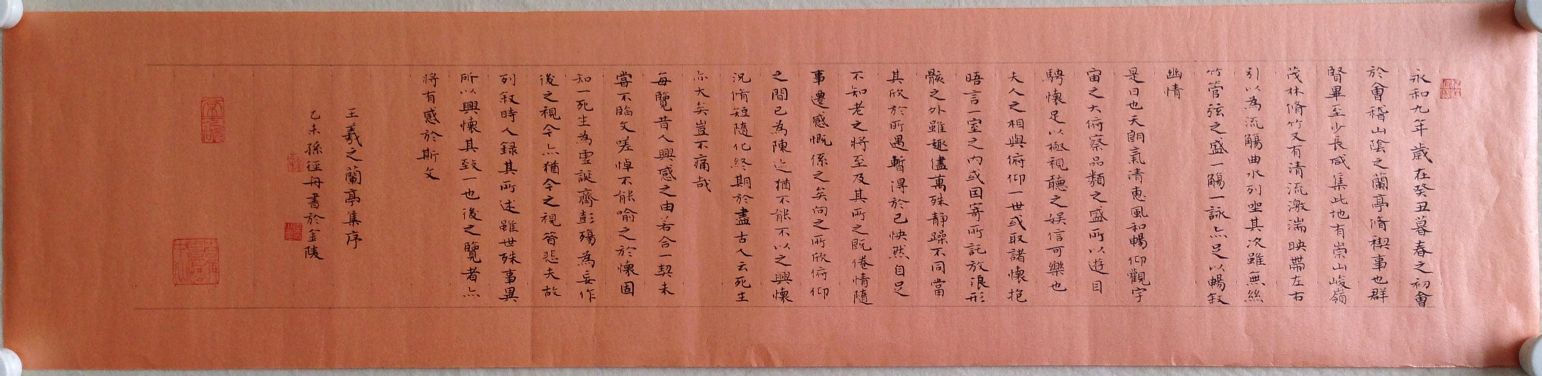 永和九年歲在癸丑暮春之初會
於會稽山陰之蘭亭脩禊事也群
賢畢至少長咸集此地有崇山峻嶺
茂林脩竹又有清流激湍映帶左右
引以為流觴曲水列坐其次雖無絲
竹管弦之盛一觴一詠亦足以暢敘
幽情
是日也天朗氣清惠風和暢仰觀宇
宙之大俯察品類之盛所以遊目
騁懷足以極視聽之娛信可樂也
夫人之相與俯仰一世或取諸懷抱
晤言一室之內或因寄所託放浪形
骸之外雖趣儘萬殊靜躁不同當
其欣於所遇暫得於己快然自足
不知老之將至及其所之既倦情隨
事遷感慨係之矣向之所欣俯仰
之間已為陳迹猶不能不以之興懷
況脩短隨化終期於盡古人云死生
亦大矣豈不痛哉
每覽昔人興感之由若合一契未
嘗不臨文嗟悼不能喻之於懷固
知一死生為虛誕齊彭殤為妄作
後之視今亦猶今之視昔悲夫故
列敘時人錄其所述雖世殊事異
所以興懷其致一也後之覽者亦
將有感於斯文
王羲之蘭亭集序
乙未孫徑舟書於金陵